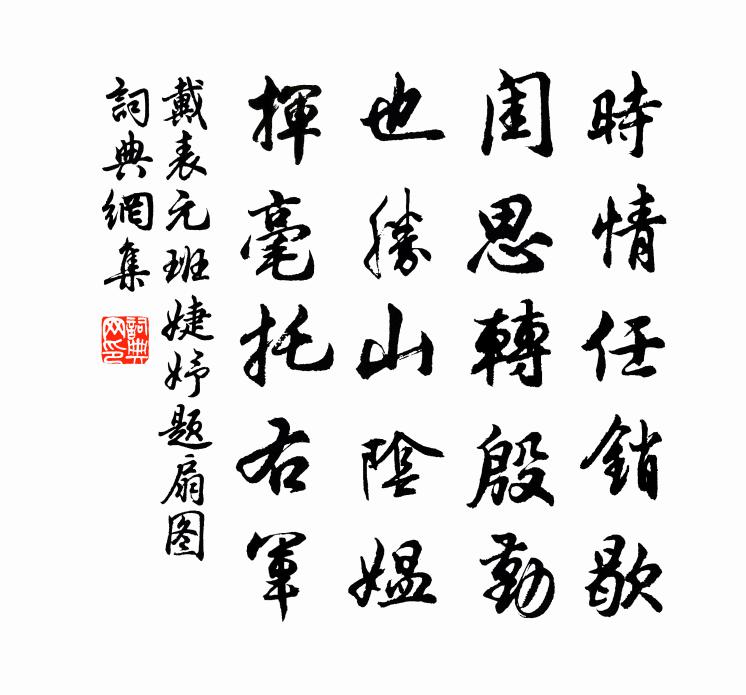 時情任銷歇
閨思轉殷勤
也勝山陰媼
揮毫托右軍
戴表元班婕妤题扇图
詞典網集
詞典网印